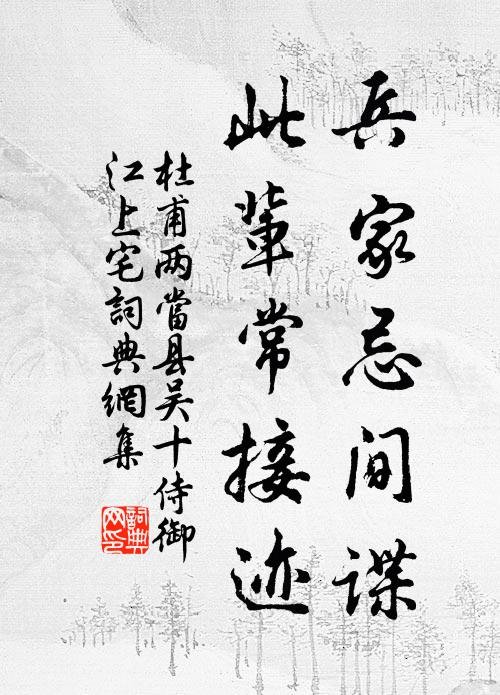 兵家忌间谍
此辈常接迹
杜甫两當县吴十侍御
江上宅詞典網集
詞典
网印